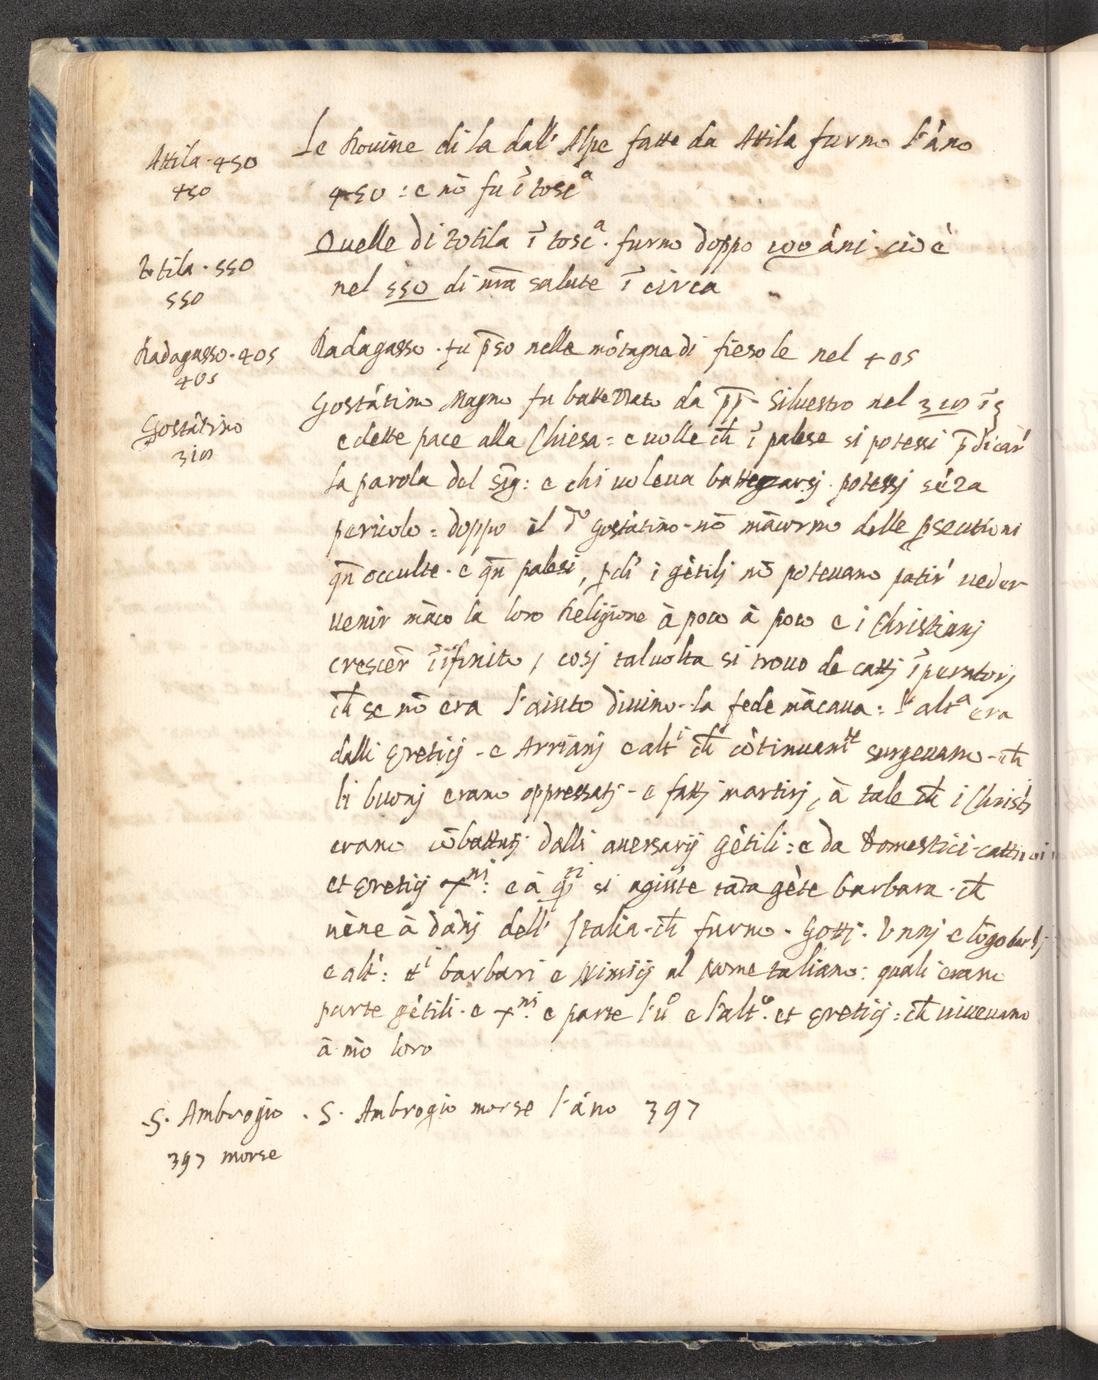 Attila · 450
450
Le Rouine di la dall' Alpe fatte da Attila furno l'áno
450 : e nō fu ī toscª
Totila · 550
550
Quelle di Totila ī toscª. furno doppo 100 áni cio è
nel 550 di nrā salute ī circa
Radagasso · 405
405
Radagasso · fu p̄so nelle mótagna di fiesole nel 405
Gostátino
Gostátino Magno fu battezzato da pp̄ Siluestro nel
e dette pace alla Chiesa = e uolle ch̄ ī palese si potessi p̄dicar'
la parola del Sig̅: e chi uoleua battezzarsj potessj séza
pericolo = doppo il d° gostátino - nō mācorno delle p̱secutioni
qn̄ occulte · e qn̄ palesi, p̱ch' i gétilj nō poteuano patir' ueder
uenir māco la loro Religione à poco à poco e i Christianj
crescer' ī īfinito, cosj taluolta si trouo de cattj īperatorj
ch̄ se nō era l'aiuto diuino - la fede mácaua : l'altª era
dalli eretícj - e Arrianj e altⁱ ch̄ cótinuamᵗᵉ surgeuano - ch̄
li buonj erano oppressatj - e fattj martirj, à tale ch̄ i Christⁱ
erano cōbattutj dalli auersarij gétili : e da domestici cattiui
et eretícj xⁿⁱ : e à si agiúte táta géte barbara · ch̄
uéne à dánj dell' Italia - ch̄ furno - Gottj · Vnnj e lōgobardj
e alt' : etⁱ barbari e Nimicj al nome taliano : quali erano
parte gétili · e xⁿⁱ : e parte l'ú° e l'alt° · et eretícj : ch̄ uiueuano
à mō loro
S. Ambrogio
397 morse
· S. Ambrogio morse l'áno 397